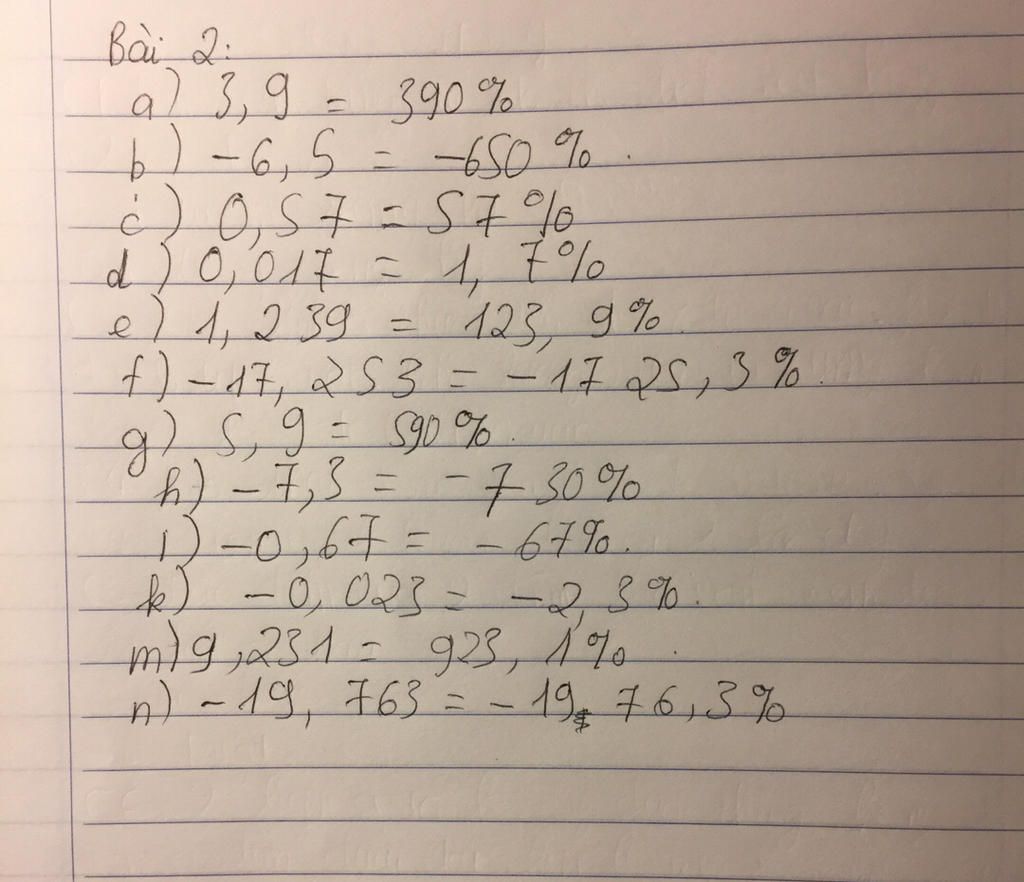 Bài 2:
a) 3,9 = 390%
b) -6,5 = -650%.
c) 0,57 = 57%
d) 0,017 = 1,7%
e) 1,239 = 123,9%.
f) -17,253 = -1725,3%.
g) 5,9 = 590%.
h) -7,3 = -730%
i) -0,67 = -67%.
k) -0,023 = -2,3%.
m) 9,231 = 923,1%.
n) -19,763 = -1976,3%